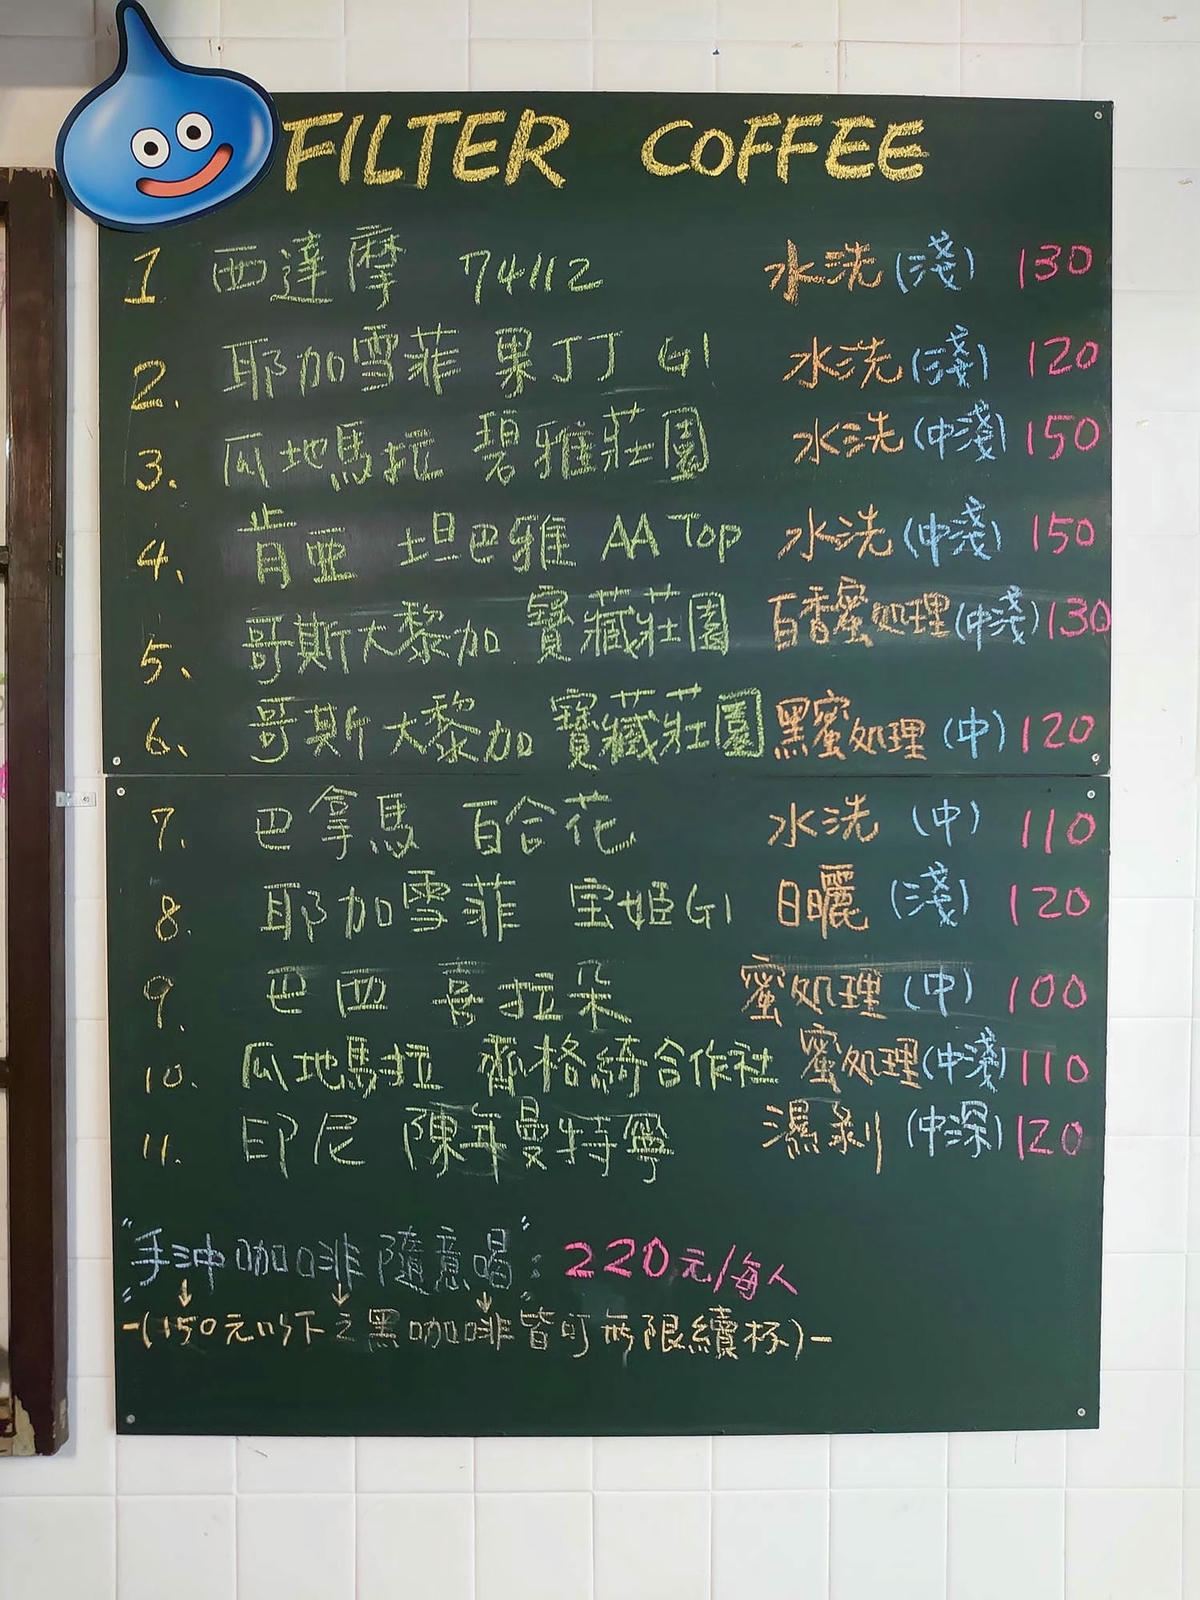 FILTER COFFEE
1 西達摩 74112 水洗(淺) 130
2. 耶加雪菲 果丁丁 G1 水洗(淺) 120
3. 瓜地馬拉 碧雅莊園 水洗(中淺) 150
4. 肯亞 坦巴雅 AA Top 水洗(中淺) 150
5. 哥斯大黎加 寶藏莊園 百香蜜処理(中淺) 130
6. 哥斯大黎加 寶藏莊園 黑蜜処理(中) 120
7. 巴拿馬 百合花 水洗(中) 110
8. 耶加雪菲 宝姫G1 日曬(淺) 120
9. 巴西 喜拉朵 蜜処理(中) 100
10. 瓜地馬拉 齊格綺合作社 蜜処理(中淺) 110
11. 印尼 陳年曼特寧 濕剝(中深) 120
"手沖咖啡隨意喝": 220元/每人
-(150元以下之黑咖啡皆可無限續杯)-